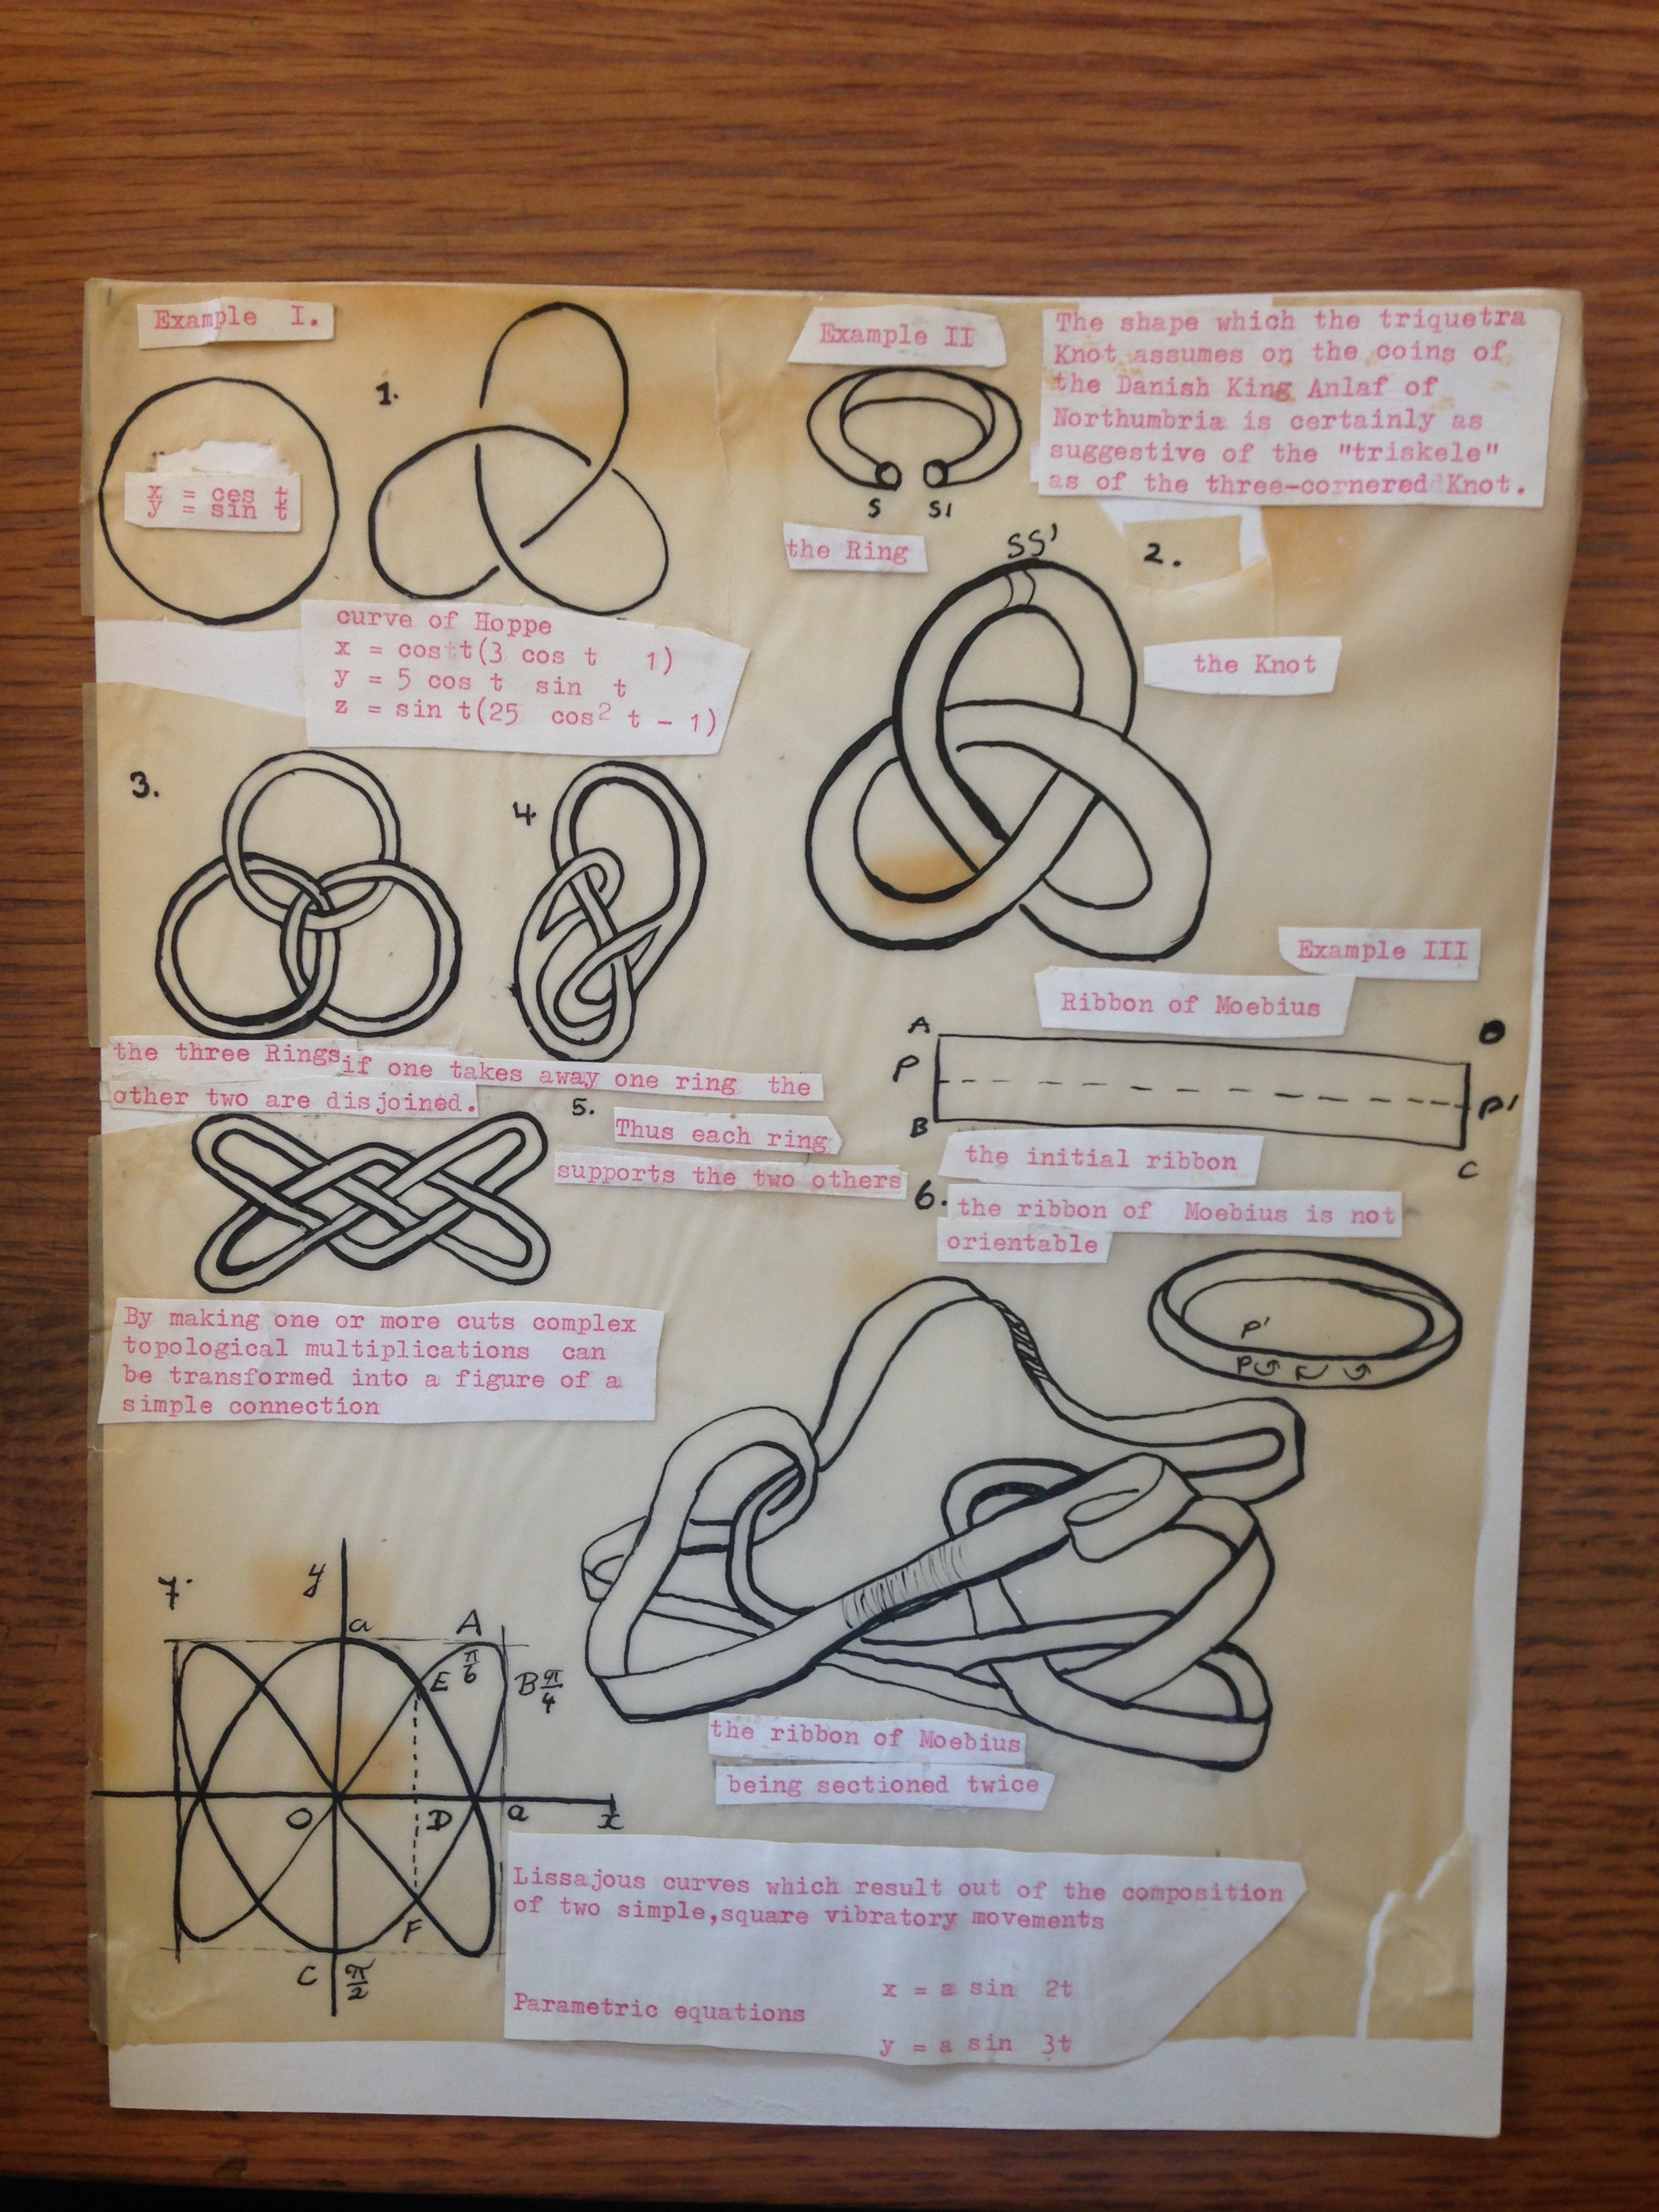 Example I.
1.
x = ces t
y = sin t
curve of Hoppe
x = cos t(3 cos t 1)
y = 5 cos t sin t
z = sin t(25 cos2 t - 1)
Example II
S S1
the Ring
The shape which the triquetra
Knot assumes on the coins of
the Danish King Anlaf of
Northumbria is certainly as
suggestive of the "triskele"
as of the three-cornered Knot.
SS'
2.
the Knot
3.
4.
the three Rings if one takes away one ring the
other two are disjoined.
5.
Thus each ring
supports the two others
By making one or more cuts complex
topological multiplications can
be transformed into a figure of a
simple connection
Example III
Ribbon of Moebius
A
P
B
P'
C
the initial ribbon
6.
the ribbon of Moebius is not
orientable
P'
P
the ribbon of Moebius
being sectioned twice
7.
y
a
A
π/6
E
B π/4
O
D
a
x
F
C π/2
Lissajous curves which result out of the composition
of two simple,square vibratory movements
x = a sin 2t
Parametric equations
y = a sin 3t